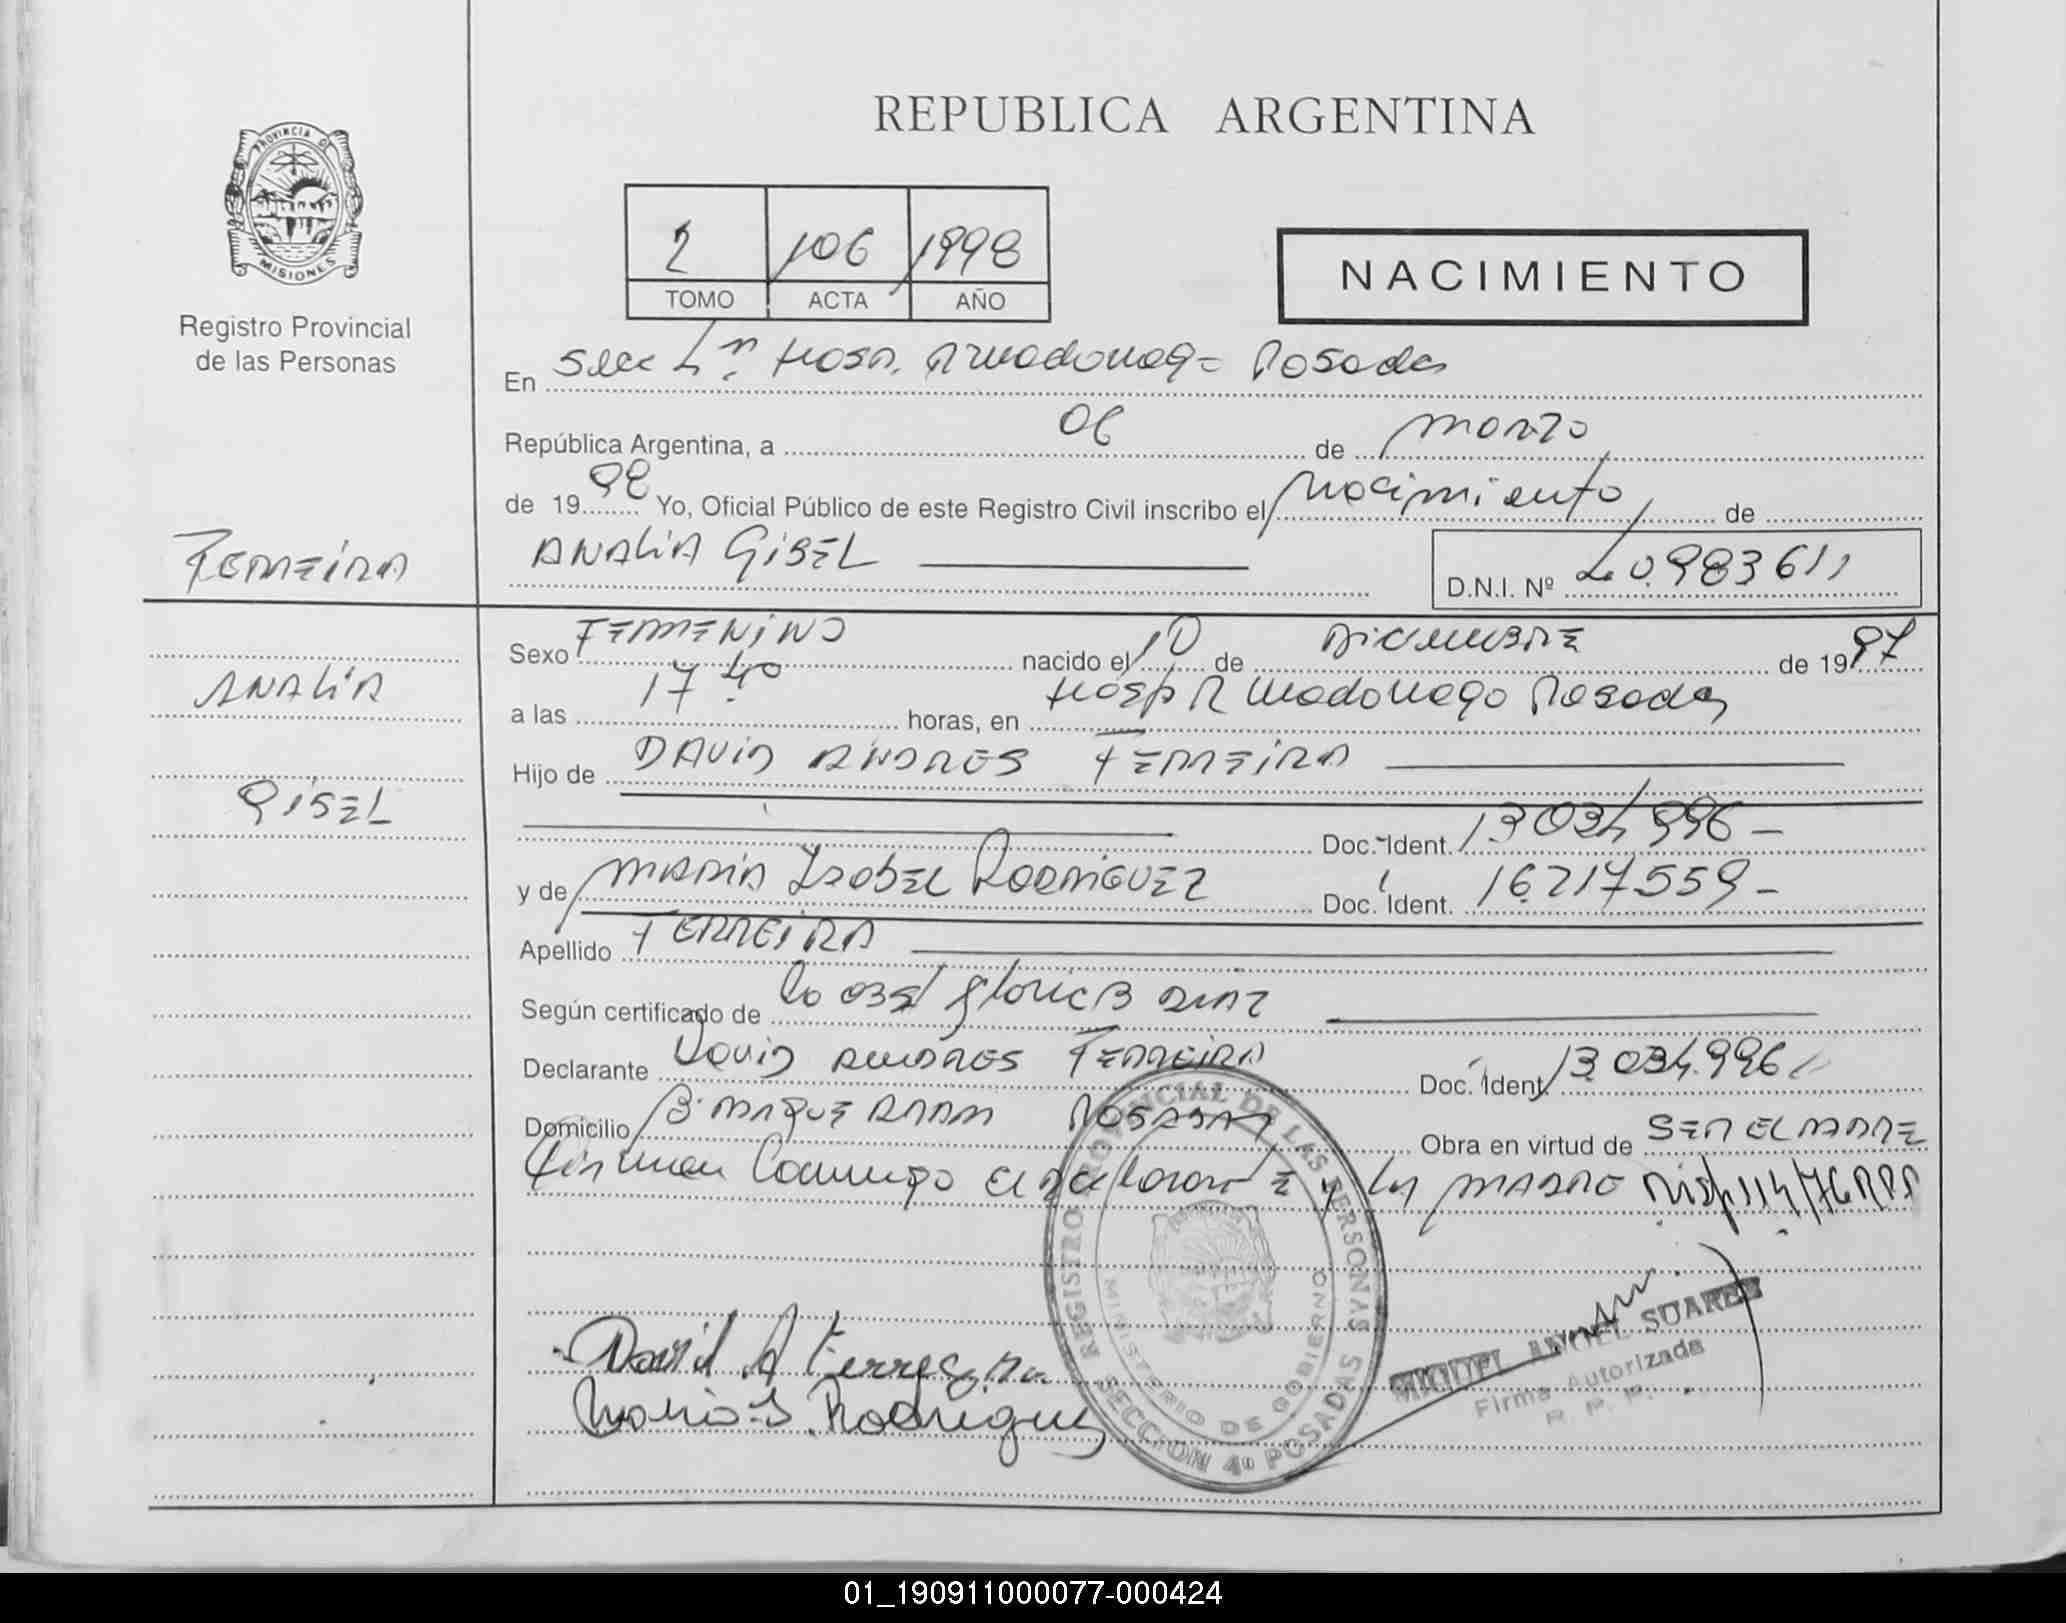 REPUBLICA ARGENTINA
PROVINCIA DE
MISIONES
Registro Provincial
de las Personas
2 106 1998
TOMO ACTA AÑO
NACIMIENTO
En Secc 4ta Hosp. R Madariaga - Posadas
República Argentina, a 06 de marzo
de 1998 Yo, Oficial Público de este Registro Civil inscribo el Nacimiento de
FERREIRA
ANALIA GISEL
D.N.I. Nº 40.983611
Sexo FEMENINO nacido el 10 de DICIEMBRE de 1997
ANALIA
a las 17 40 horas, en Hosp R Madariaga Posadas
Hijo de DAVID ANDRES FERREIRA
GISEL
Doc. Ident. 13 034 996 -
y de MARIA ISABEL RODRIGUEZ Doc. Ident. 16.217.559 -
Apellido FERREIRA
Según certificado de DIAZ
Declarante David ANDRES FERREIRA Doc. Ident. 13.034.996
Domicilio POSADAS Obra en virtud de SER EL PADRE
Firman Conmigo el declarante y la MADRE Disp 114/76 RPP
REGISTRO PROVINCIAL DE LAS PERSONAS
MINISTERIO DE GOBIERNO
SECCION 4º POSADAS
David A Ferreira
Maria I. Rodriguez
MIGUEL ANGEL SUAREZ
Firma Autorizada
R. P. P.
01_190911000077-000424